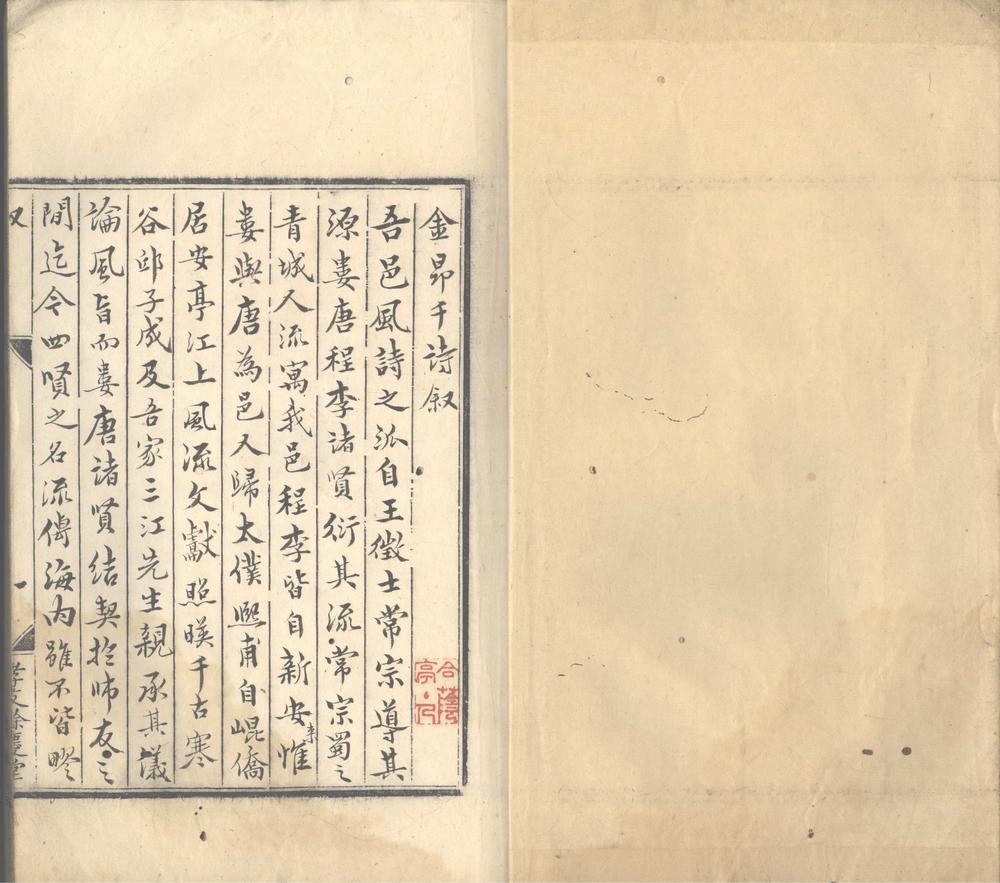 金昂千诗叙
吾邑風詩之派自王徵士常宗導其
源婁唐程李諸賢衍其流常宗蜀之
青城人流寓我邑程李皆自新安来惟
婁與唐為邑人歸太僕熙甫自崐僑
居安亭江上風流文獻照暎千古寒
谷邱子成及吾家三江先生親承其議
論風旨而婁唐諸賢结契扵师友之
間迄今四賢之名流傳海内雖不皆膠
叙
一
孝友餘慶堂